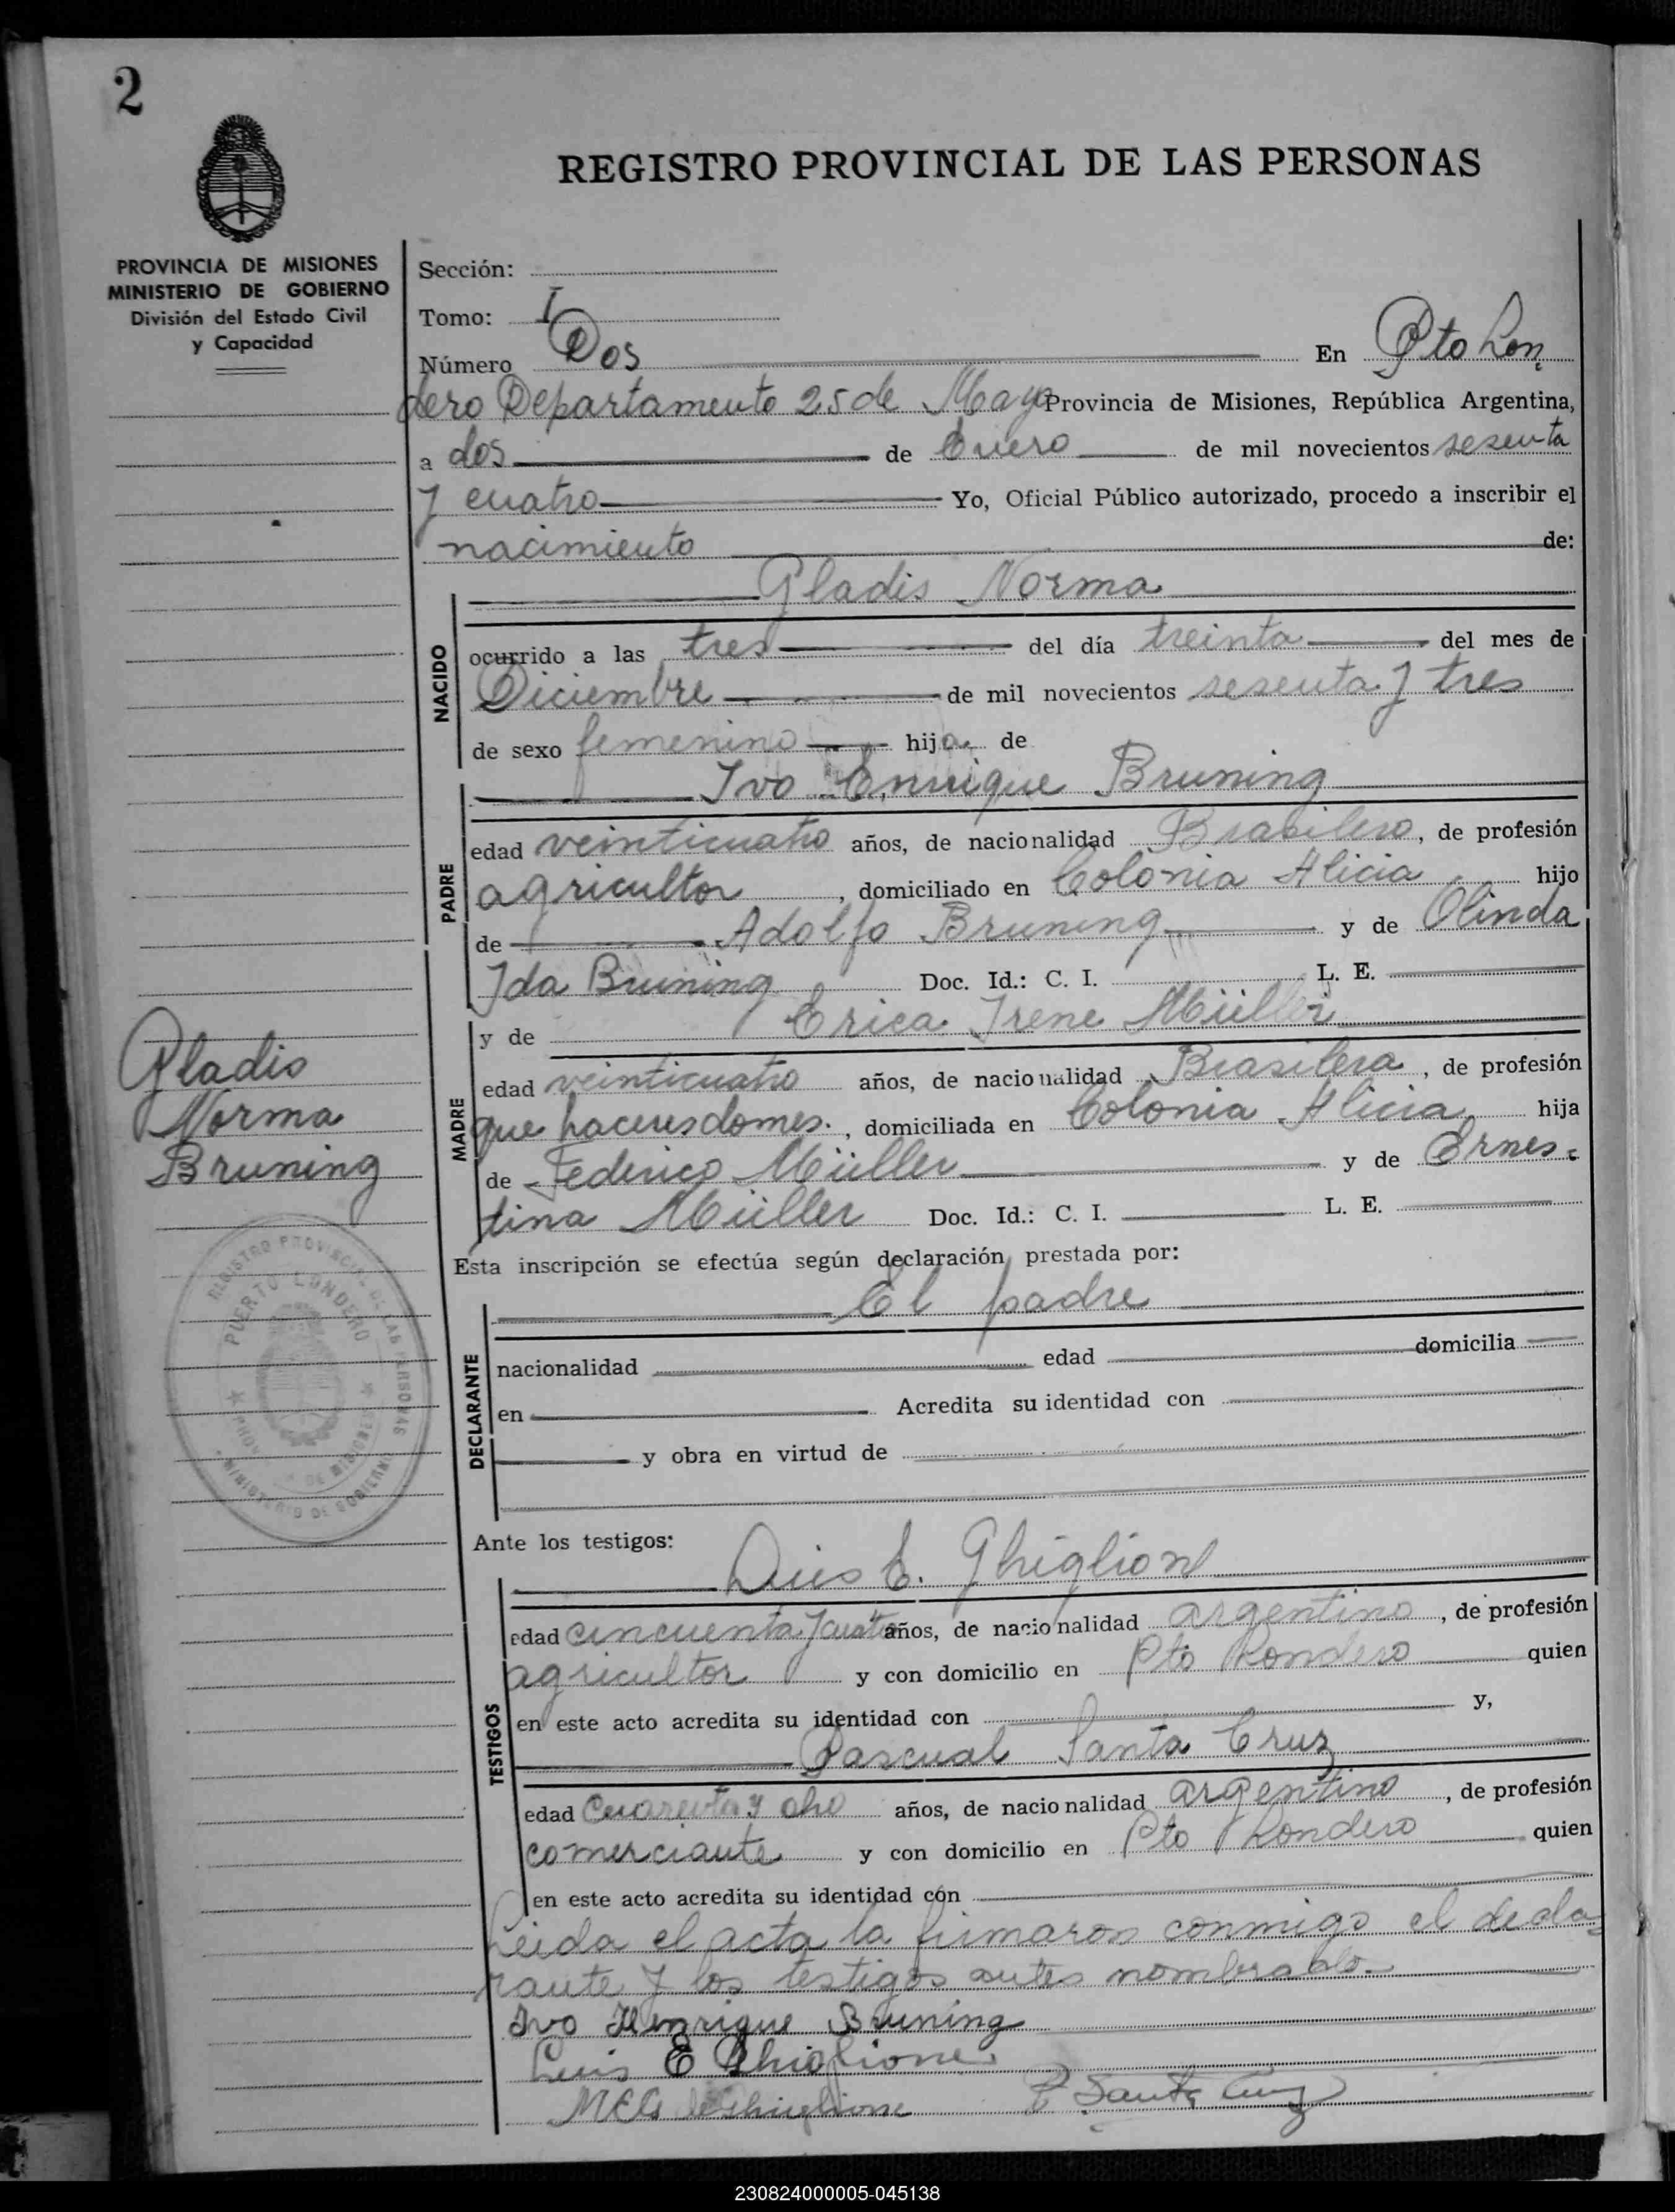 2
REGISTRO PROVINCIAL DE LAS PERSONAS
PROVINCIA DE MISIONES
MINISTERIO DE GOBIERNO
División del Estado Civil
y Capacidad
Sección:
Tomo: I
Número Dos En Pto Lon
dero Departamento 25 de Mayo Provincia de Misiones, República Argentina,
a dos de Enero de mil novecientos sesenta
y cuatro Yo, Oficial Público autorizado, procedo a inscribir el
nacimiento de:
Gladis Norma
NACIDO
ocurrido a las tres del día treinta del mes de
Diciembre de mil novecientos sesenta y tres
de sexo femenino hija de
Ivo Enrique Bruning
PADRE
edad veinticuatro años, de nacionalidad Brasilero, de profesión
agricultor, domiciliado en Colonia Alicia hijo
de Adolfo Bruning y de Olinda
Ida Bruning Doc. Id.: C. I. L. E.
y de Erica Irene Müller
MADRE
edad veinticuatro años, de nacionalidad Brasilera, de profesión
que haceres domes., domiciliada en Colonia Alicia hija
de Federico Müller y de Ernes-
tina Müller Doc. Id.: C. I. L. E.
Gladis
Norma
Bruning
REGISTRO PROVINCIAL DE LAS PERSONAS
PUERTO LONDERO
MINISTERIO DE GOBIERNO
Esta inscripción se efectúa según declaración prestada por:
El padre
DECLARANTE
nacionalidad edad domicilia
en Acredita su identidad con
y obra en virtud de
Ante los testigos:
Luis E. Ghiglione
TESTIGOS
edad cincuenta y cuatro años, de nacionalidad argentino, de profesión
agricultor y con domicilio en Pto Londero quien
en este acto acredita su identidad con y,
Pascual Santa Cruz
edad Cuarenta y oho años, de nacionalidad argentino, de profesión
comerciante y con domicilio en Pto Londero quien
en este acto acredita su identidad con
Leida el acta la firmaron conmigo el decla-
rante y los testigos antes nombrado
Ivo Henrique Bruning
Luis E Ghiglione
Ghiglione P Santa Cruz
230824000005-045138